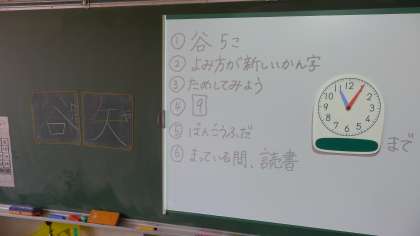 谷 矢
① 谷 5こ
② よみ方が新しいかん字
③ ためしてみよう
④ 9
⑤ ばんごうふだ
⑥ まっている間、読書
12
1
2
3
4
5
6
7
8
9
10
11
まで